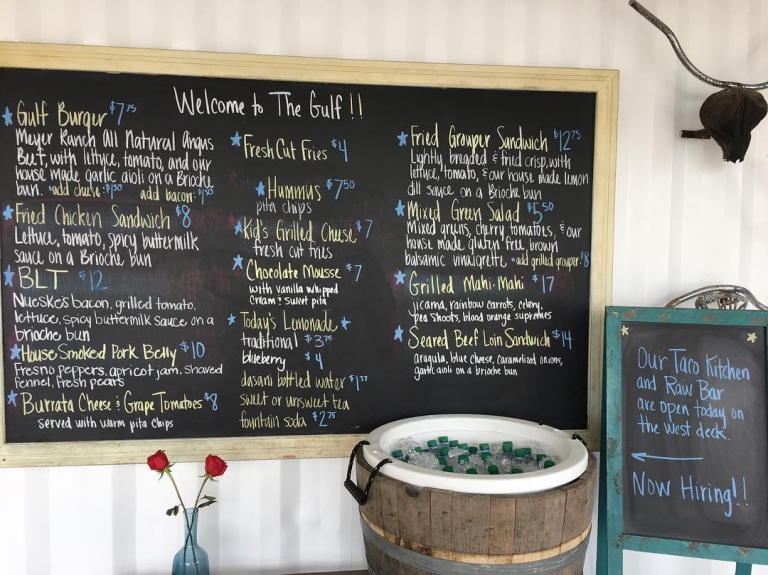 Welcome to The Gulf!!
Gulf Burger $7.75
Meyer Ranch All Natural Angus
Beef, with lettuce, tomato, and our
house made garlic aioli on a Brioche
bun. •add cheese $1.50 add bacon $1.50
Fried Chicken Sandwich $8
Lettuce, tomato, spicy buttermilk
sauce on a Brioche bun
BLT $12
Nueske's bacon, grilled tomato,
lettuce, spicy buttermilk sauce, on a
brioche bun
House Smoked Pork Belly $10
Fresno peppers, apricot jam, shaved
fennel, fresh pears
Burrata Cheese & Grape Tomatoes $8
served with warm pita chips
Fresh Cut Fries $4
Hummus $7.50
pita chips
Kid's Grilled Cheese $7
fresh cut fries
Chocolate Mousse $7
with vanilla whipped
cream & sweet pita
Today's Lemonade
traditional $3.75
blueberry $4
dasani bottled water
sweet or unsweet tea
fountain soda $2.75
Fried Grouper Sandwich $12.75
Lightly breaded & fried crisp, with
lettuce, tomato, & our house made lemon
dill sauce on a Brioche bun
Mixed Green Salad $5.50
Mixed greens, cherry tomatoes, & our
house made gluten free, brown
balsamic vinaigrette •add grilled grouper $8
Grilled Mahi-Mahi $17
jicama, rainbow carrots, celery,
pea shoots, blood orange supremes
Seared Beef Loin Sandwich $14
arugula, blue cheese, caramelized onions,
garlic aioli on a brioche bun
Our Taco Kitchen
and Raw Bar
are open today on
the west deck.
Now Hiring!!